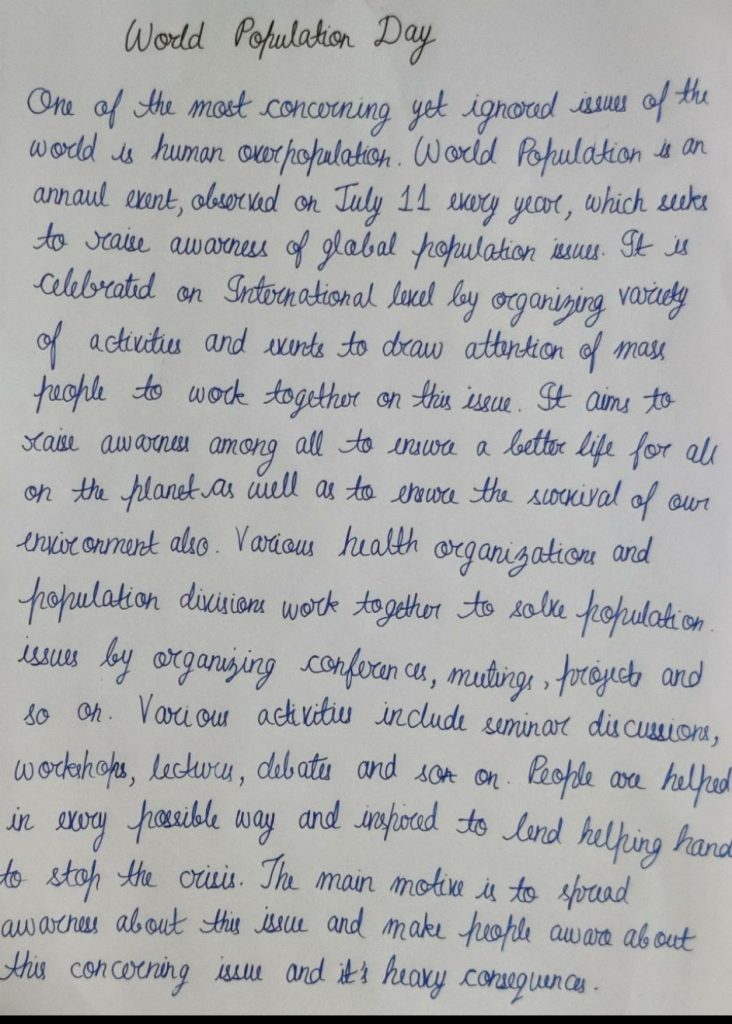 World Population Day
One of the most concerning yet ignored issues of the
world is human overpopulation. World Population is an
annaul event, observed on July 11 every year, which seeks
to raise awarness of global population issues. It is
celebrated on International level by organizing variety
of activities and events to draw attention of mass
people to work together on this issue. It aims to
raise awarness among all to ensure a better life for all
on the planet as well as to ensure the survival of our
environment also. Various health organizations and
population divisions work together to solve population
issues by organizing conferences, meetings, projects and
so on. Various activities include seminar discussions,
workshops, lectures, debates and so on. People are helped
in every possible way and inspired to lend helping hand
to stop the crisis. The main motive is to spread
awarness about this issue and make people aware about
this concerning issue and it's heavy consequences.